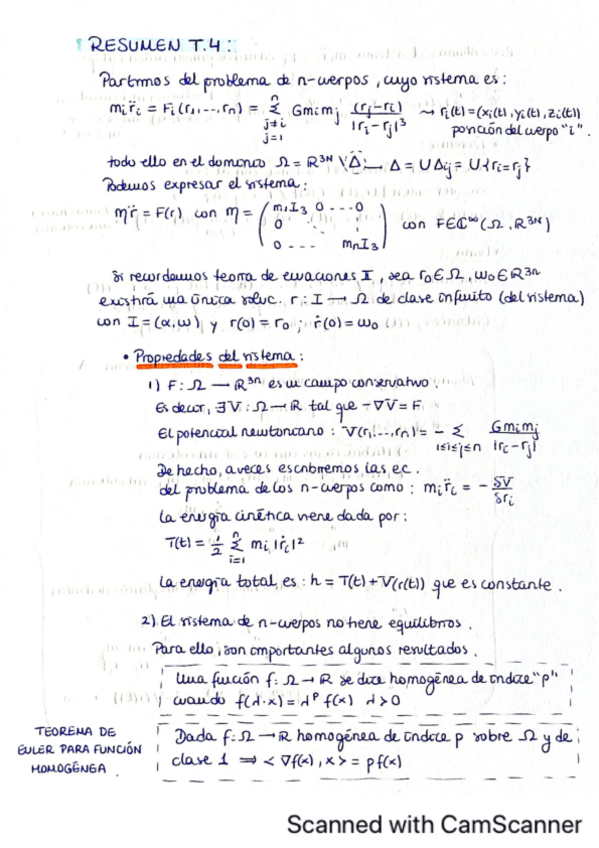 RESUMEN T.4:
Partimos del problema de n-cuerpos, cuyo sistema es:
mᵢr̈ᵢ = Fᵢ(r₁,...,rₙ) = Σ_{j≠i, j=1}^{n} Gmᵢmⱼ (rⱼ-rᵢ)/|rᵢ-rⱼ|³ ⤳ rᵢ(t)=(xᵢ(t), yᵢ(t), zᵢ(t))
posición del cuerpo "i".
todo ello en el dominio Ω = ℝ³ᴺ \ Δ → Δ = ∪Δᵢⱼ = ∪{rᵢ=rⱼ}
Podemos expresar el sistema:
Mr̈ = F(r) con M = (m₁I₃ 0 ... 0
0
0 ... mₙI₃) con F∈C^∞(Ω, ℝ³ᴺ)
Si recordamos teoría de ecuaciones I, sea r₀∈Ω, ω₀∈ℝ³ⁿ
existirá una única soluc. r: I → Ω de clase infinito (del sistema)
con I = (α,ω) y r(0) = r₀; ṙ(0) = ω₀
• Propiedades del sistema:
1) F: Ω → ℝ³ⁿ es un campo conservativo.
Es decir, ∃V: Ω → ℝ tal que -∇V = F.
El potencial newtoniano: V(r₁,...,rₙ) = - Σ_{1≤i≤j≤n} Gmᵢmⱼ/|rᵢ-rⱼ|
De hecho, a veces escribiremos las ec.
del problema de los n-cuerpos como: mᵢr̈ᵢ = - δV/δrᵢ
La energía cinética viene dada por:
T(t) = 1/2 Σ_{i=1}^{n} mᵢ|ṙᵢ|²
La energía total es: h = T(t) + V(r(t)) que es constante.
2) El sistema de n-cuerpos no tiene equilibrios.
Para ello, son importantes algunos resultados.
Una función f: Ω → ℝ se dice homogénea de índice "p"
cuando f(λ·x) = λᵖ f(x) λ>0
TEOREMA DE
EULER PARA FUNCIÓN
HOMOGÉNEA.
Dada f: Ω → ℝ homogénea de índice p sobre Ω y de
clase 1 ⟹ <∇f(x), x> = pf(x)
Scanned with CamScanner